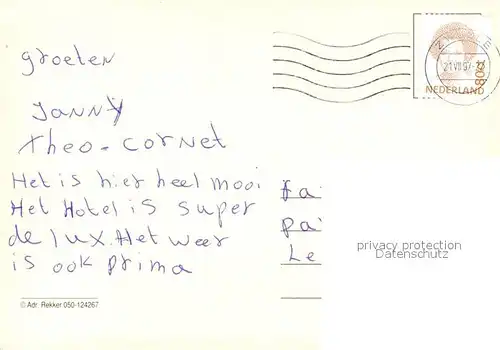 groeten
Janny
Theo - Cornet
Het is hier heel mooi
Het Hotel is super
de lux. Het weer
is ook prima
© Adr. Rekker 050-124267
21 VII 97
80ct
NEDERLAND
fa
pa
Le
privacy protection
Datenschutz